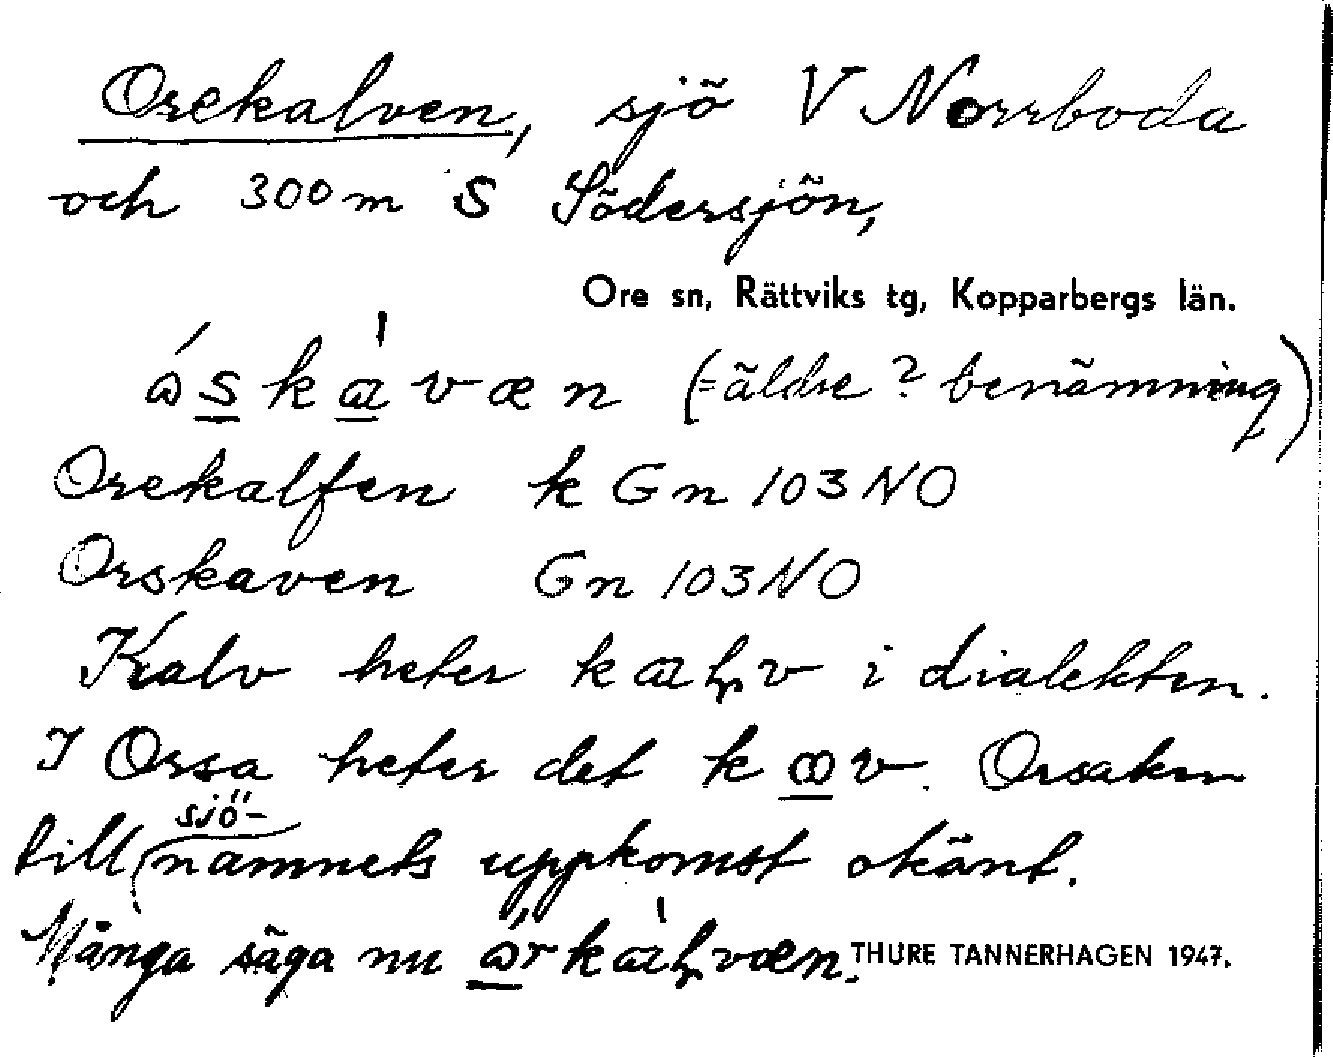 Orekalven, sjö V Norrboda
och 300 m S Södersjön,
Ore sn, Rättviks tg, Kopparbergs län.
(= äldre? benämning)
Orekalfen k Gn 103 NO
Orskaven Gn 103 NO
Kalv heter i dialekten.
I Orsa heter det Orsaken
till sjö-namnets uppkomst okänt.
Många säga nu
THURE TANNERHAGEN 1947.